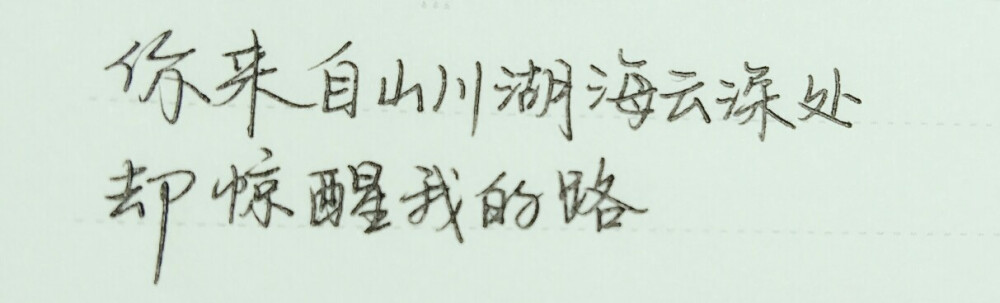 你来自山川湖海云深处
却惊醒我的路